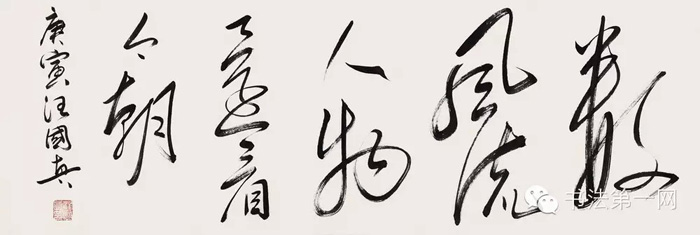 数
风流
人物
还看
今朝
庚寅汪國真
书法第一网